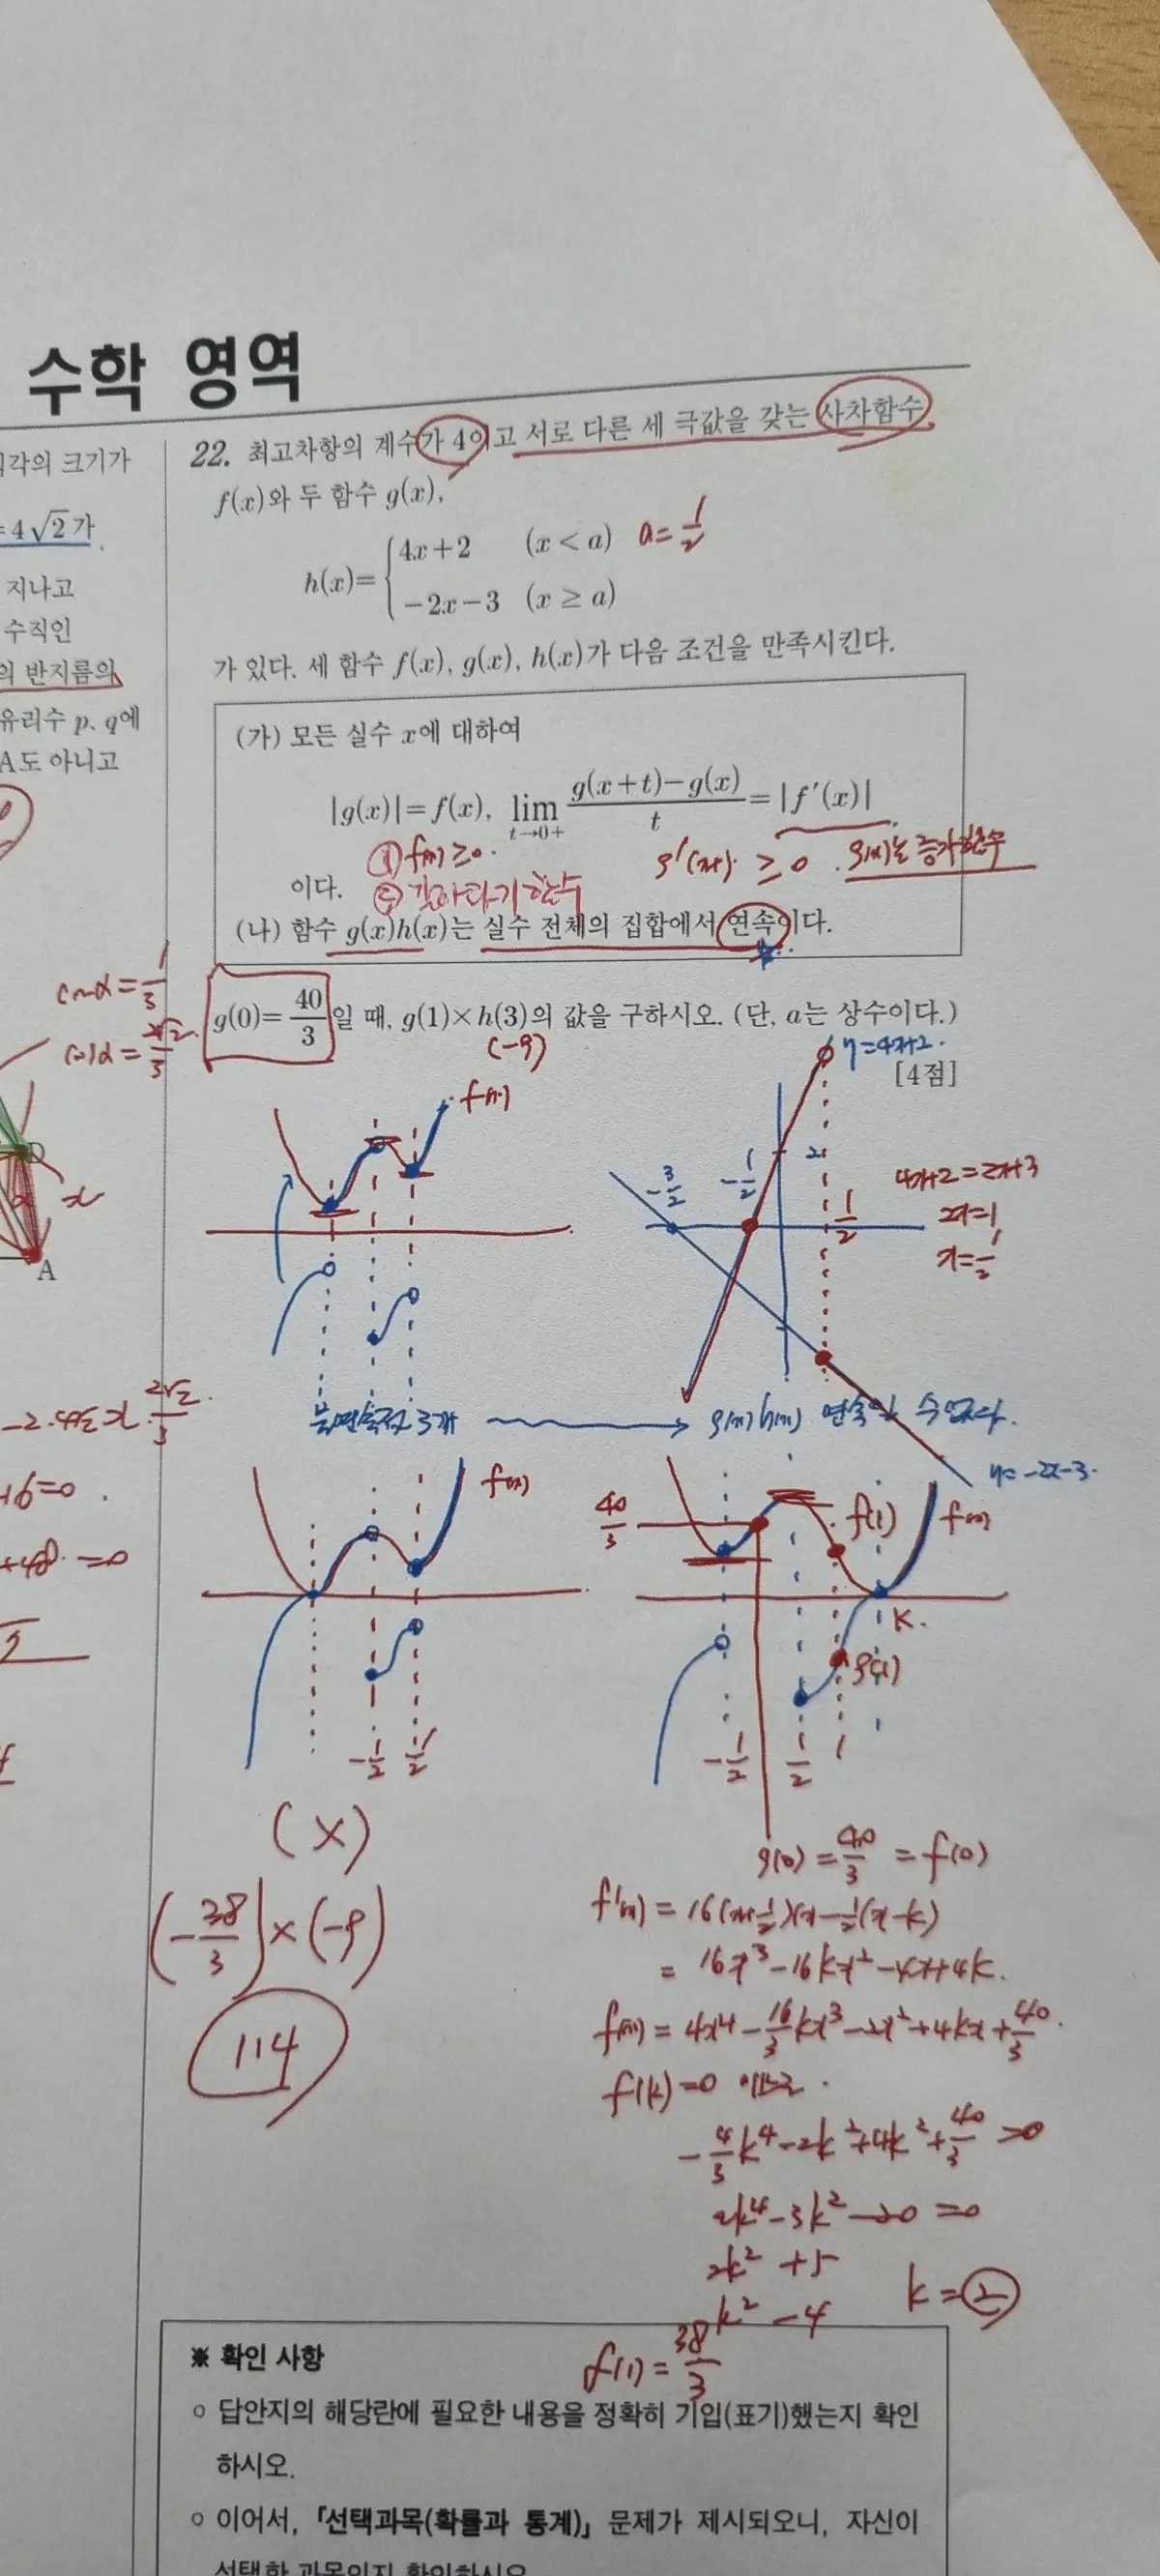 수학 영역
각의 크기가
= 4√2 가
지나고
수직인
의 반지름의
유리수 p, q에
A도 아니고
22. 최고차항의 계수가 4이고 서로 다른 세 극값을 갖는 사차함수
f(x)와 두 함수 g(x),
h(x)= { 4x+2 (x < a)
−2x−3 (x ≥ a)
a = 1/2
가 있다. 세 함수 f(x), g(x), h(x)가 다음 조건을 만족시킨다.
(가) 모든 실수 x에 대하여
|g(x)|= f(x), lim t→0+ g(x+t)−g(x) / t = |f′(x)|
① f(x) ≥ 0.
g'(x) ≥ 0. g(x)는 증가함수
이다.
② 갈아타기 함수
(나) 함수 g(x)h(x)는 실수 전체의 집합에서 연속이다.
cosα = 1/3
g(0)= 40/3 일 때, g(1)×h(3)의 값을 구하시오. (단, a는 상수이다.)
(-9)
y=4x+2.
[4점]
f(x)
-3/2
-1/2
2
1/2
4x+2=2x+3
2x=1
x=1/2
D
x
A
불연속점 3개
g(x)h(x) 연속일 수 없다.
y=-2x-3.
+16=0
f(x)
40/3
f(1)
f(x)
K.
g(1)
-1/2
1/2
-1/2
1/2
1
(×)
g(0) = 40/3 = f(0)
f'(x) = 16(x+1/2)(x-1/2)(x-k)
= 16x³-16kx²-4x+4k.
(-38/3)×(-9)
114
f(x) = 4x⁴ - 16/3kx³ - 2x² + 4kx + 40/3.
f(k)=0 이므로.
-4/3k⁴-2k²+4k²+40/3 = 0
2k⁴-3k²-20 = 0
2k² +5
k² -4
k = 2
f(1) = 38/3
※ 확인 사항
○ 답안지의 해당란에 필요한 내용을 정확히 기입(표기)했는지 확인
하시오.
○ 이어서, 「선택과목(확률과 통계)」 문제가 제시되오니, 자신이
선택한 과목인지 확인하시오.